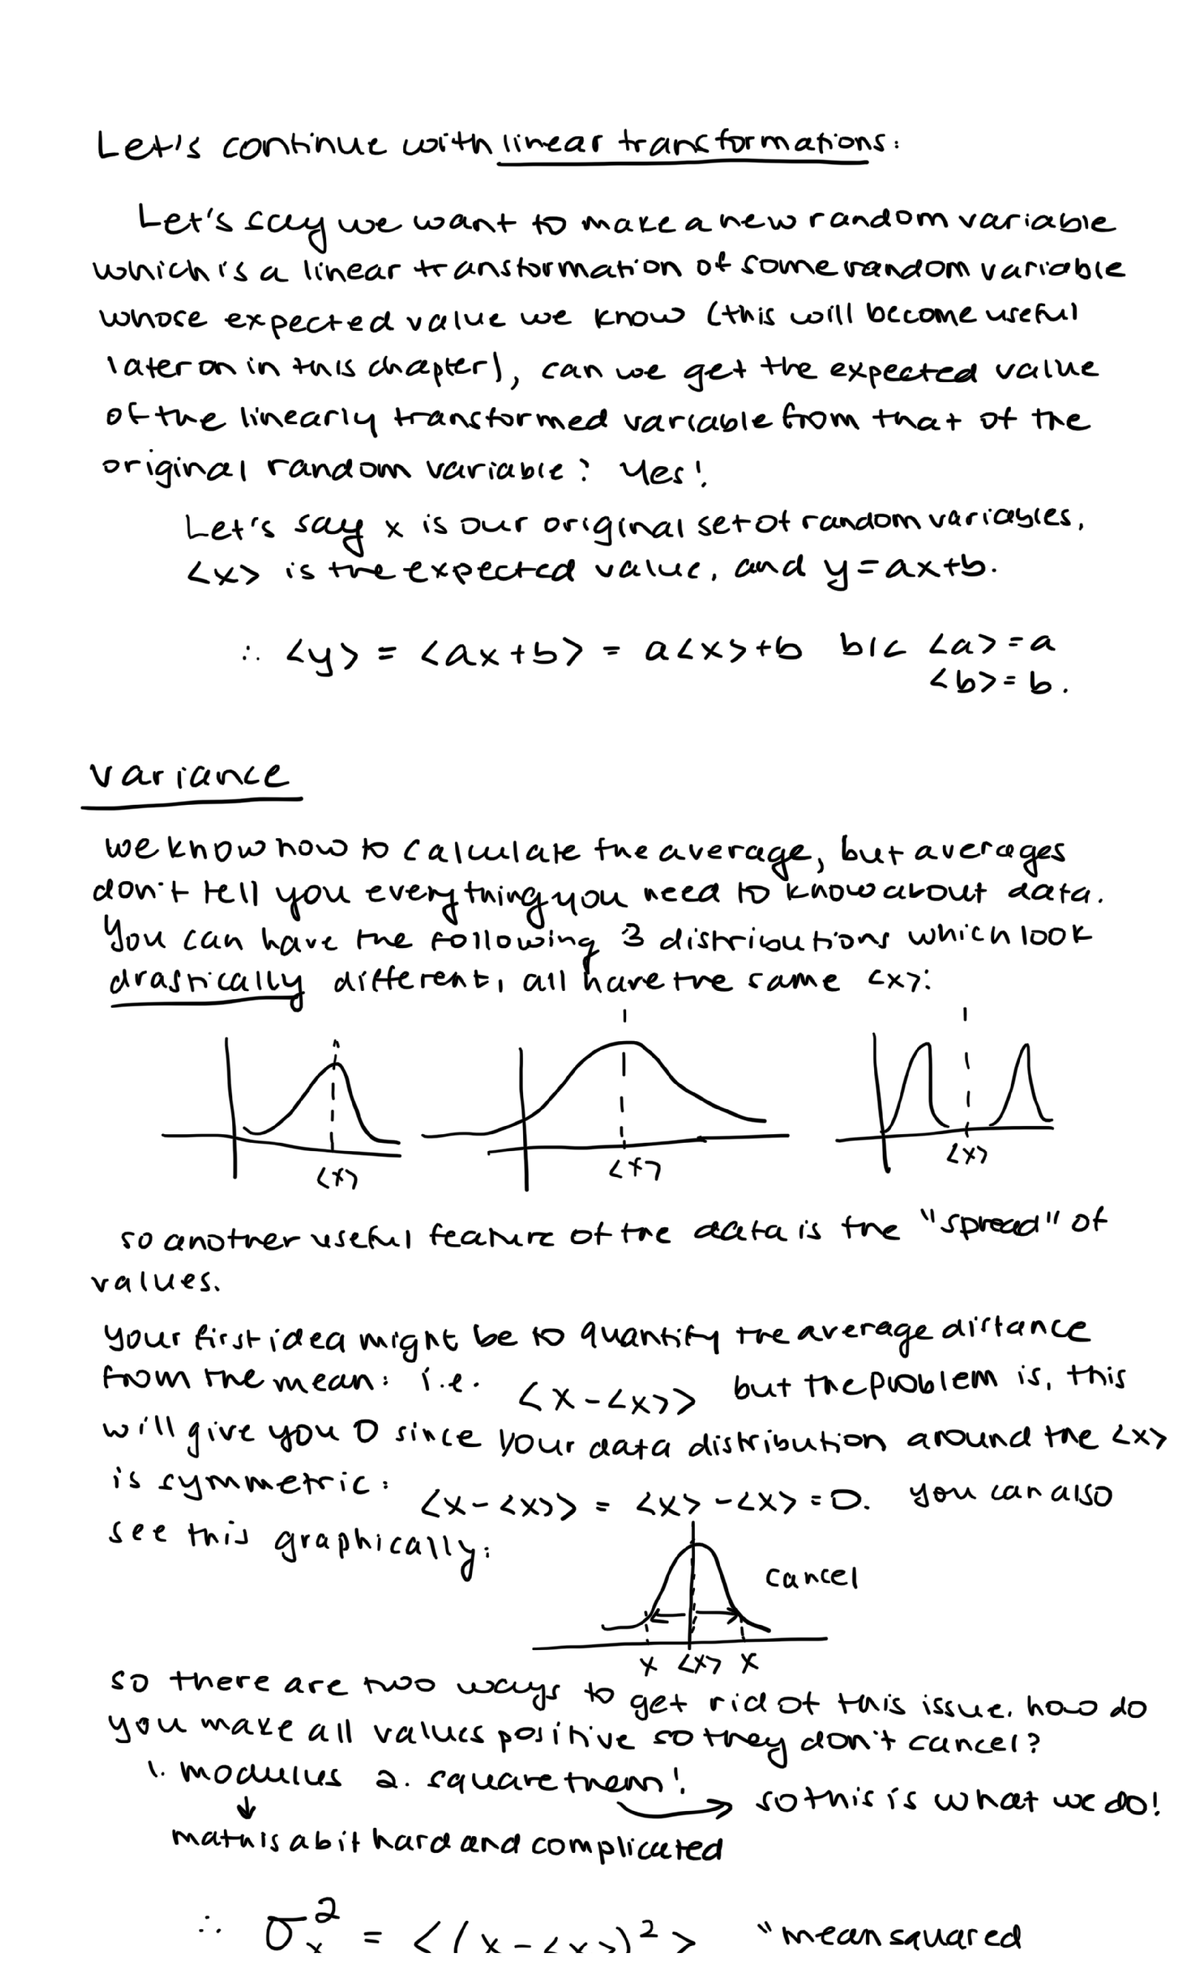 Let's continue with linear transformations:
Let's say we want to make a new random variable
which is a linear transformation of some random variable
whose expected value we know (this will become useful
later on in this chapter), can we get the expected value
of the linearly transformed variable from that of the
original random variable? Yes!
Let's say x is our original set of random variables,
<x> is the expected value, and y=ax+b.
∴ <y> = <ax+b> = a<x>+b b/c <a>=a
<b>=b.
variance
we know how to calculate the average, but averages
don't tell you everything you need to know about data.
You can have the following 3 distributions which look
drastically different, all have the same <x>:
<x> <x> <x>
so another useful feature of the data is the "spread" of
values.
your first idea might be to quantify the average distance
from the mean: i.e. <x-<x>> but the problem is, this
will give you 0 since your data distribution around the <x>
is symmetric: <x-<x>> = <x>-<x>=0. you can also
see this graphically:
cancel
x <x> x
so there are two ways to get rid of this issue. how do
you make all values positive so they don't cancel?
1. modulus 2. square them! → so this is what we do!
↓
math is a bit hard and complicated
∴ σₓ² = <(x-<x>)²> "mean squared